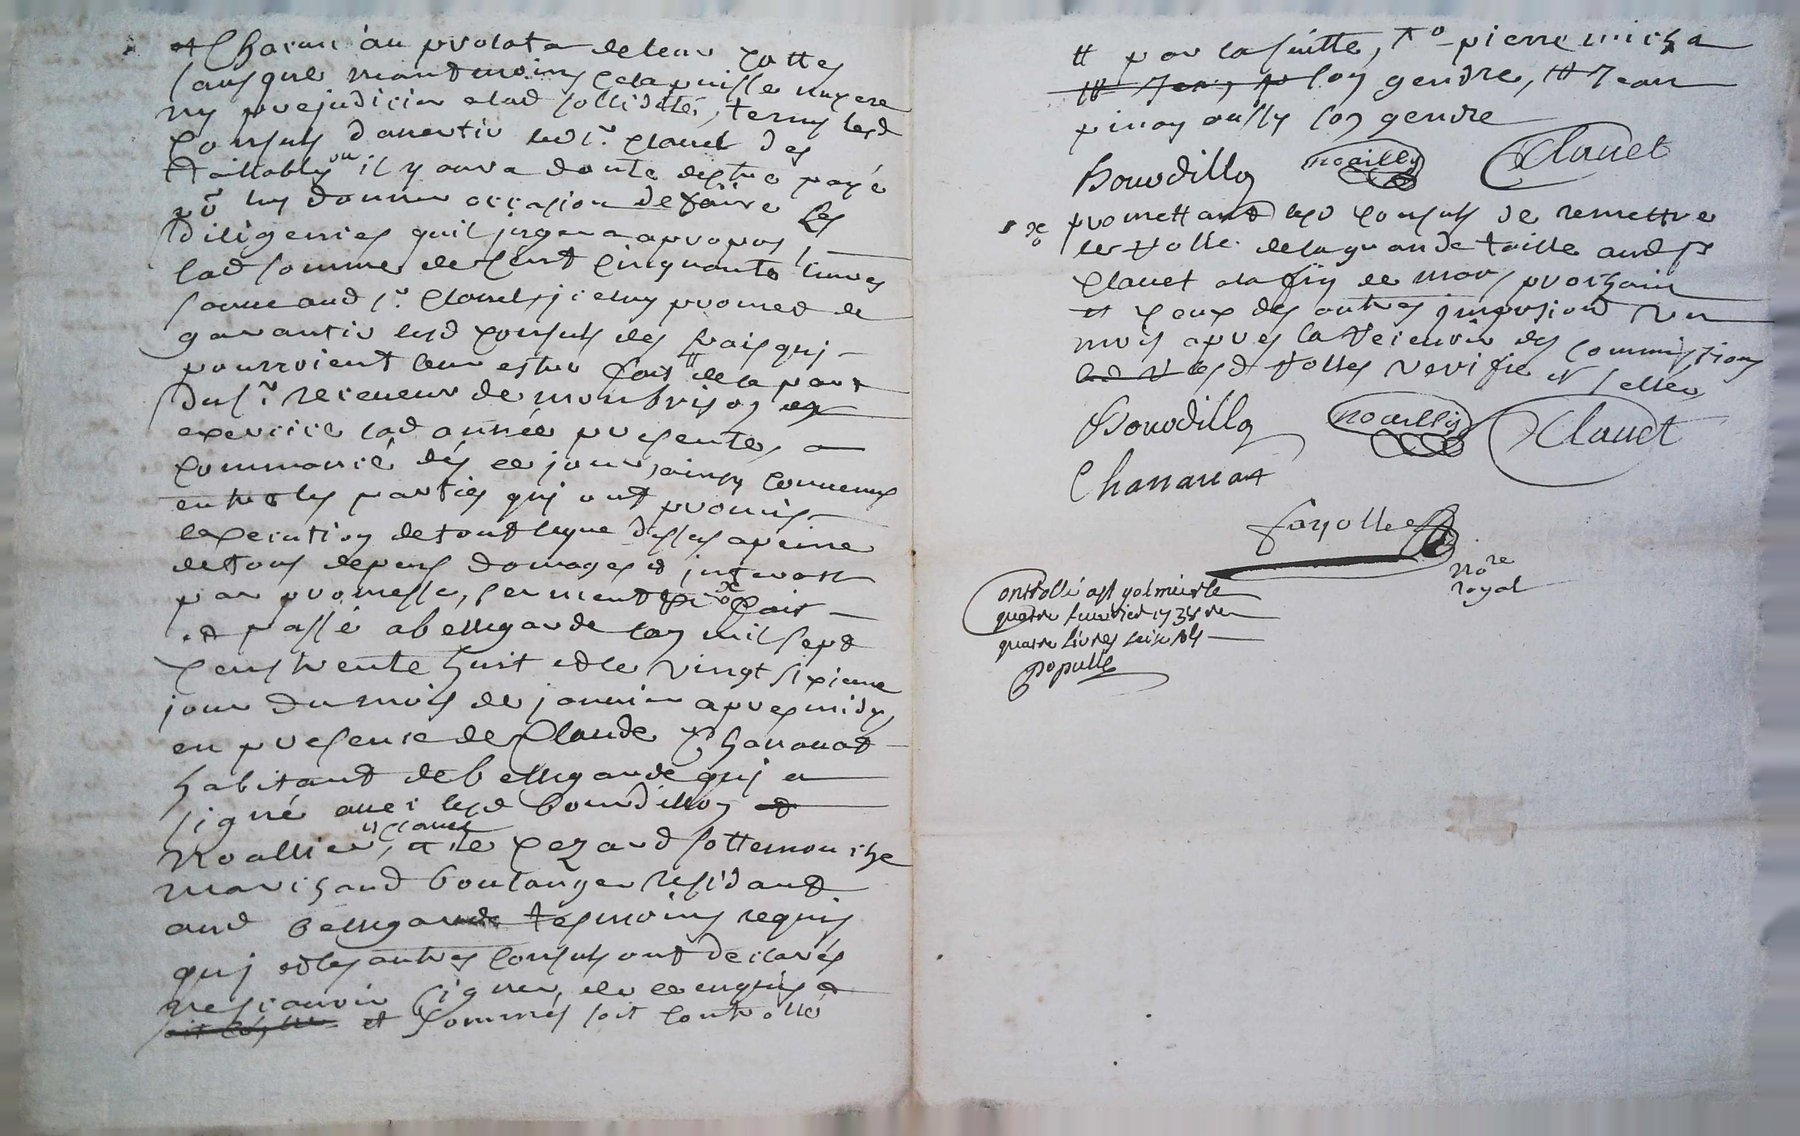 et chacun au prolata de leur cottes
sans que neantmoins cela puisse nuyere
ny prejudicier a lad sollidité, tenus lesd
consuls d'avertir led sr. Clauet des
taillables ou il y aura doute destre payé
pr luy donner occasion de faire les
diligences quil jugera apropos,
lad somme de cent cinquante livres
aud sr. Clauet, icelluy promet de
garantir lesd consuls des frais qui
pourroient leur estre fait # de la part
du sr. receveur de monbrison en
exercice lad année presente, a
commancé dés ce jour, ainsy convenus
entre les parties qui ont promis
lexecution de tout ce que dessus a peine
de tous depens domages et interest
par promesse, serment &c fait
et passé a bellegarde lan mil sept
cens trente huit et le vingt sixieme
jour du mois de janvier apres midy,
en presence de Claude Chanauat
habitant de bellegarde qui a
signé avec lesd bourdillon et
Noallier, et Clauet et de sottemouche
marchand boulanger residant
aud bellegarde tesmoins requis
qui et les autres consuls ont declarés
ne scavoir signer, de ce enquis et
et sommés soit controllé
# par la suitte, pierre micha
son gendre, # Jean
pinay aussy son gendre
Bourdillon noailly Clauet
promettant lesd consuls de remettre
le rolle de la grande taille aud sr
Clauet a la fin de mars prochain
et ceux des autres imposions un
mois apres la reception des commissions
lesd rolles verifié et sellés
Bourdillon noailly Clauet
Chanauat
fayolle
Nore
royal
Controllé a st galmier le
quatre fevrier 1738 reçu
quatre livres seise sols
populle